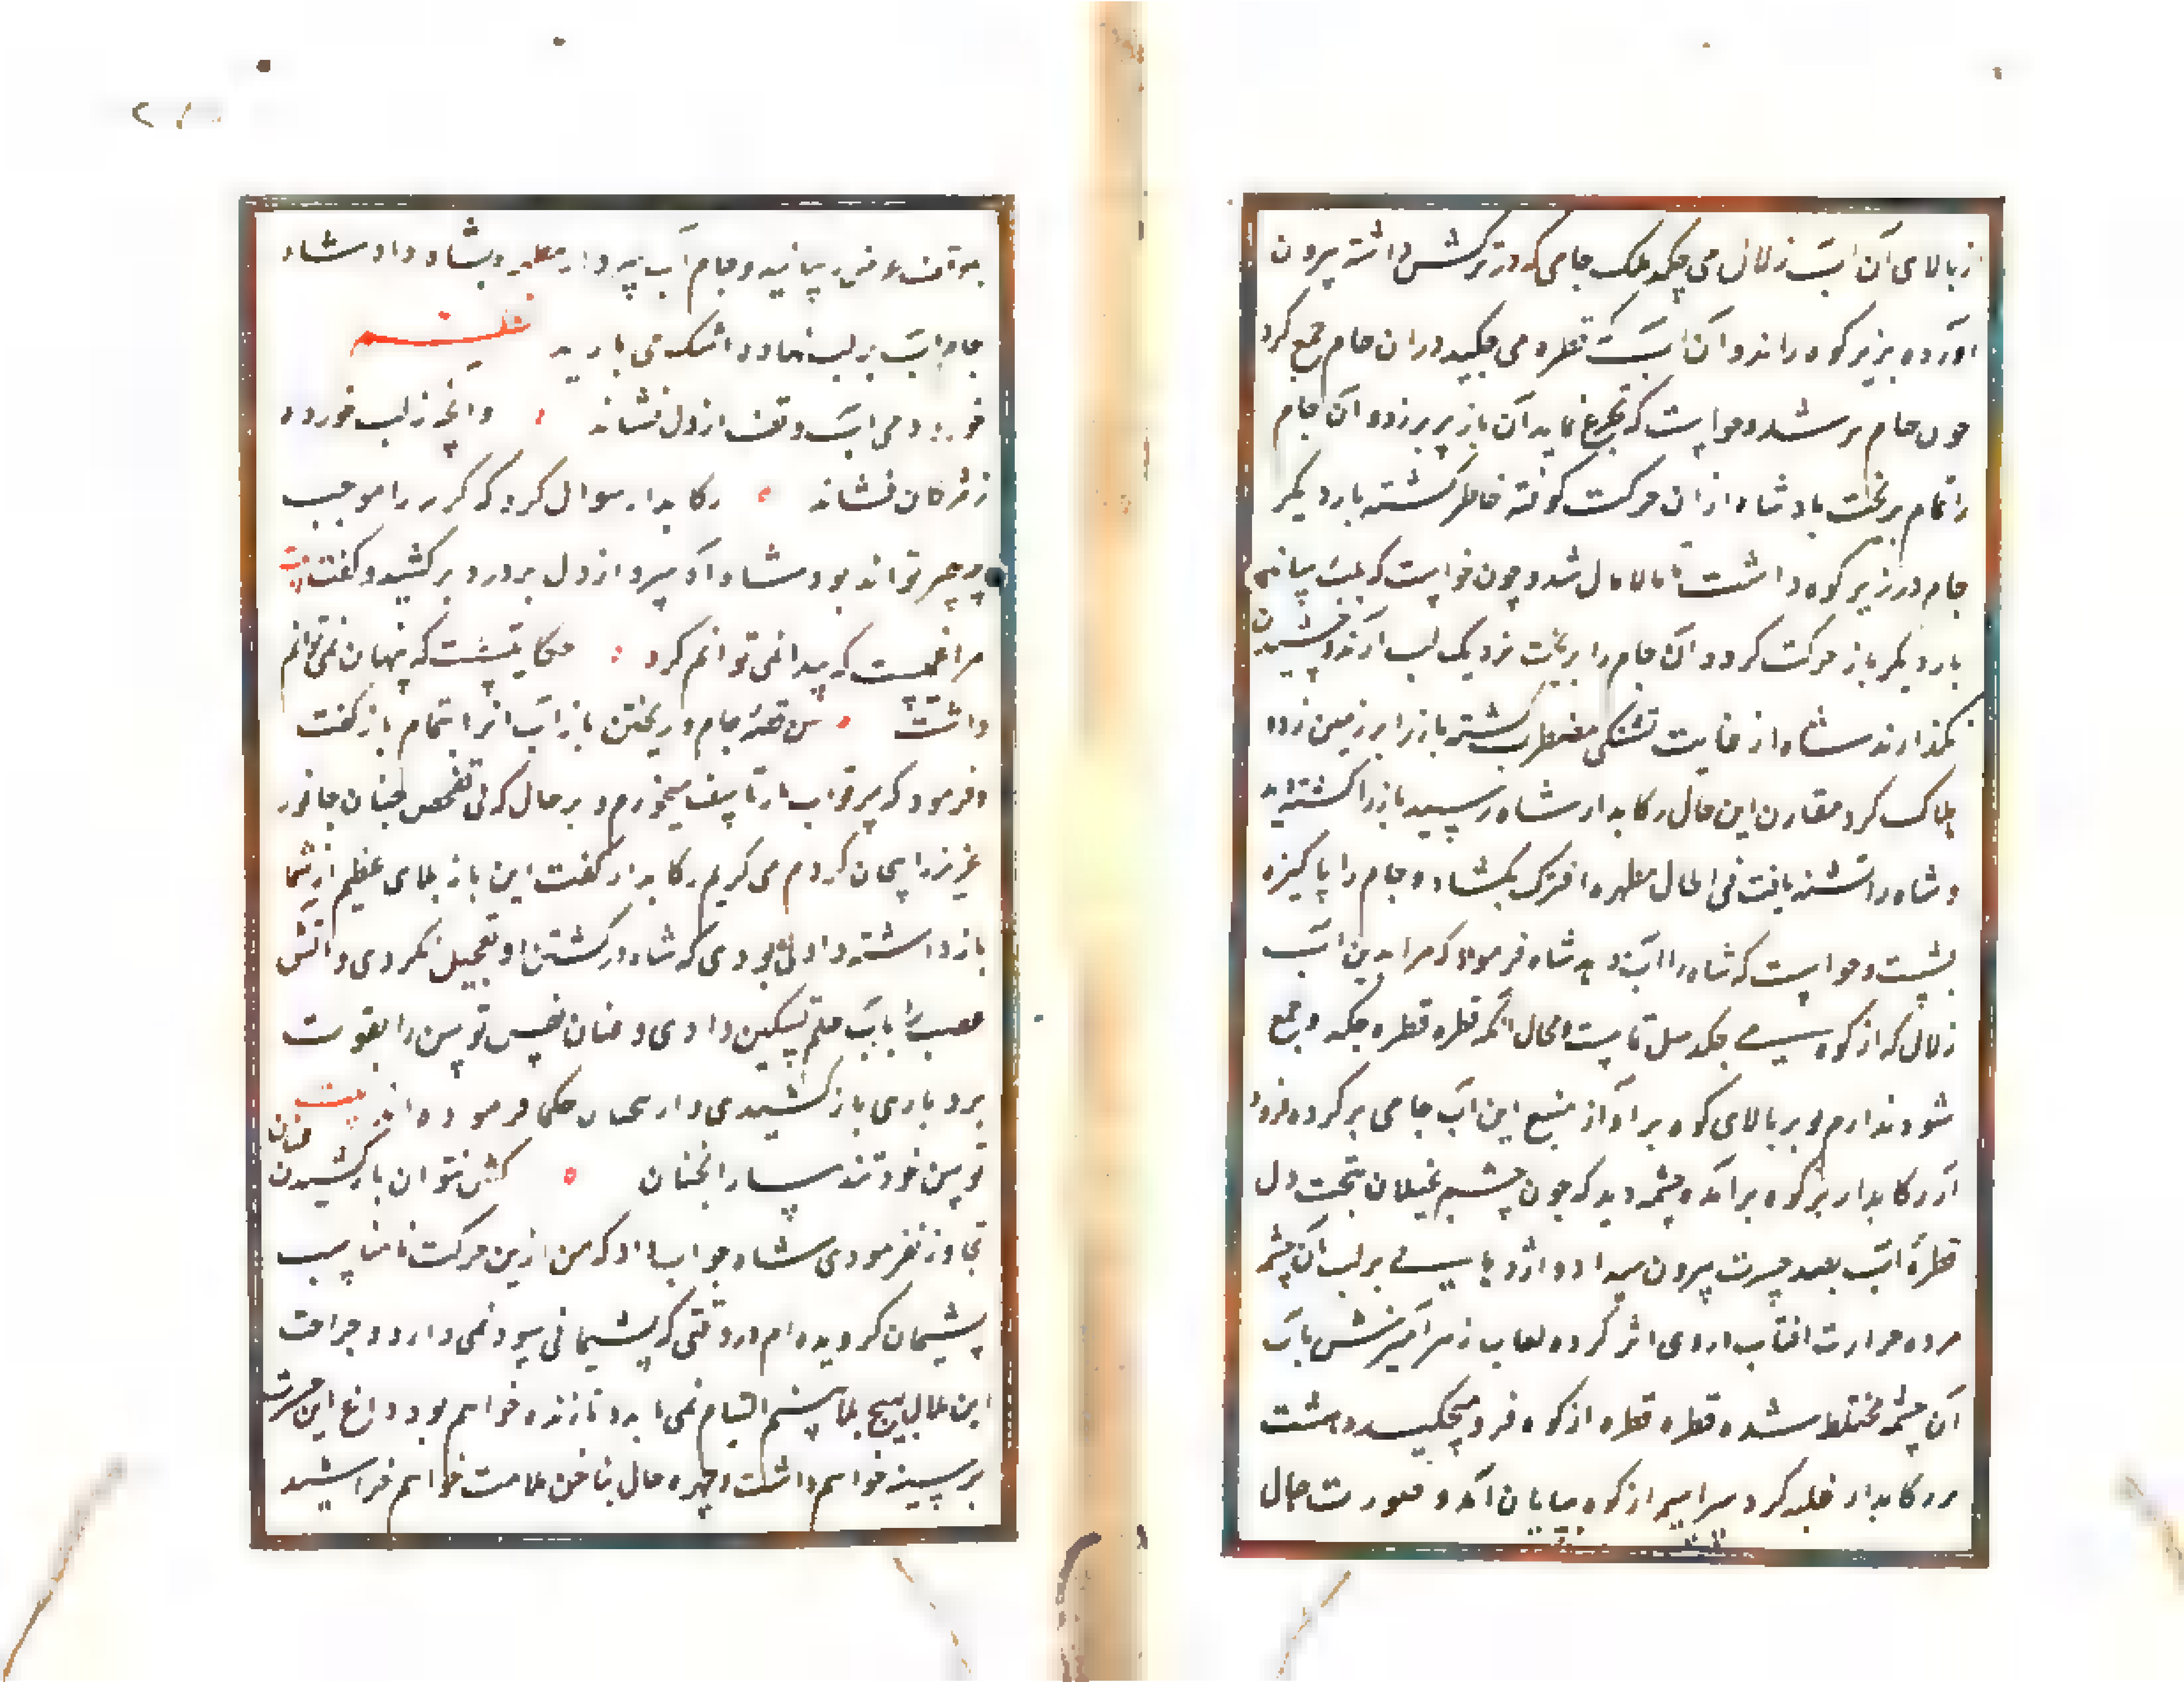 از بالای آن آب زلال می چکد ملک جامی که در ترکش داشت بیرون
آورده بزیر کوه راند و آن آب که قطره قطره می چکید در ان جام جمع کرد
چون جام پر شد و خواست که تجرع نماید آن باز پر بر زد و آن جام
را تمام بریخت پادشاه از ان حرکت کوفته خاطر گشته بار دیگر
جام در زیر کوه داشت تا مالامال شد و چون خواست که بلب رساند
بار دیگر باز حرکت کرد و آن جام را بریخت نزدیک لب آرند و چشیدن
نگذارند شاه از غایت تشنگی مضطرب گشته باز را بر زمین زده
هلاک کرد مقارن این حال رکابدار شاه رسید باز را کشته دید
و شاه را تشنه یافت فی الحال مطهره از فتراک بگشاد و جام را پاکیزه
بشست و خواست که شاه را آب دهد شاه فرمود که مرا بدین آب
زلال که از کوه می چکد میل تمامست و مجال آنکه قطره قطره چکد و جمع
شود ندارم و بر بالای کوه برآ و از منبع این آب جامی پر کرده فرود
آر رکابدار بر کوه برآمد و چشمه دید که چون چشم بخیلان سخت دل
قطرۀ آب بصد حسرت بیرون میداد و اژدهایی بر لب آن چشمه
مرده حرارت آفتاب در وی اثر کرده لعاب زهر آمیزش بآب
آن چشمه مختلط شده قطره قطره از کوه فرو میچکید دهشت
بر رکابدار غلبه کرد سراسیمه از کوه بپایان آمد و صورت حال
بموقف عرض رسانید و جام آب سرد از مطهره بشاه داد شاه
جام آب بر لب نهاد و اشک می بارید نظم
خورد دمی آب و تف از دل نشاند وانچه ز لب خورد
ز مژگان فشاند رکابدار سوال کرد که گریه را موجب
چه چیز تواند بود شاه آه سرد از دل پر درد برکشید و گفت بیت
مرا غمیست که پیدا نمی توانم کرد حکایتیست که پنهان نمی توانم
داشت پس قصۀ جام و ریختن باز آب انرا بتمام باز گفت
و فرمود که بر فوات باز تاسف میخورم و بر حال که بی تفحص چنان جانور
عزیز را بیجان کردم می گریم رکابدار گفت این باز بلای عظیم از شما
باز داشته و اولی بودی که شاه در کشتن او تعجیل نکردی و آتش
غضب را بآب حلم تسکین دادی و عنان نفس توسن را بقوت
بردباری باز کشیدی و از سخن حکما فرموده اند بیت
توسن خود تند مساز انچنان کش نتوان باز کشیدن عنان
تجاوز نفرمودی شاه جواب داد که من ازین حرکت نامناسب
پشیمان گردیده ام در وقتی که پشیمانی سود نمی دارد و جراحت
این ملال بهیچ مرهم التیام نمی یابد و تا زنده خواهم بود داغ این حسرت
بر سینه خواهم داشت و چهره حال بناخن ملامت خواهم خراشید